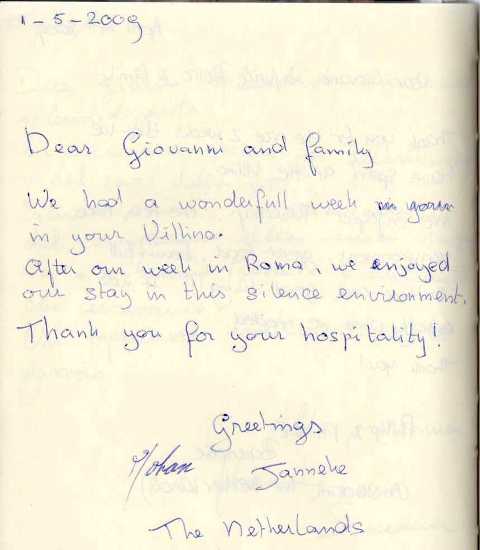 1-5-2009
Dear Giovanni and family
We had a wonderfull week in your
in your Villino.
After our week in Roma, we enjoyed
our stay in this silence environment.
Thank you for your hospitality!
Greetings
Johan Janneke
The Netherlands